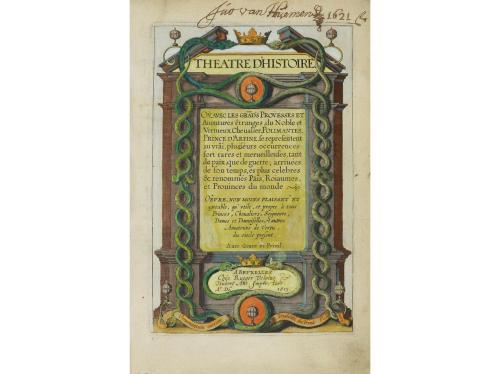 Juo van Huemen 1621
THEATRE D'HISTOIRE
OU AVEC LES GRÃDS PROVESSES ET
Aventures étranges du Noble et
Vertueux Cheualier, POLIMANTES,
PRINCE D'ARFINE, se representent
au vrai, plusieurs occurrences
fort rares et merueilleuses, tant
de paix que de guerre, arriuees
de son temps, es plus celebres
& renommés Païs, Roiaumes,
et Prouinces du monde
OEVVRE NON MOINS PLAISANT ET
agréable, qu'utile, et propre à tous
Princes, Cheualiers, Seigneurs,
Dames et Damoiselles, & autres
Amateurs de Vertu,
du siecle present.
Auec Grace et Priuil.
A BRVXELLES
Chéz Rutger Velpius
Hubert Anth. Impr. Iuré
1613